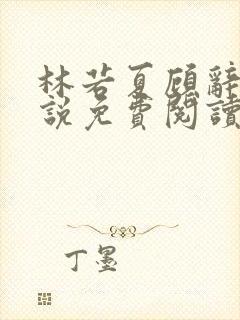 林若夏顾辭
説免費閱讀
丁墨